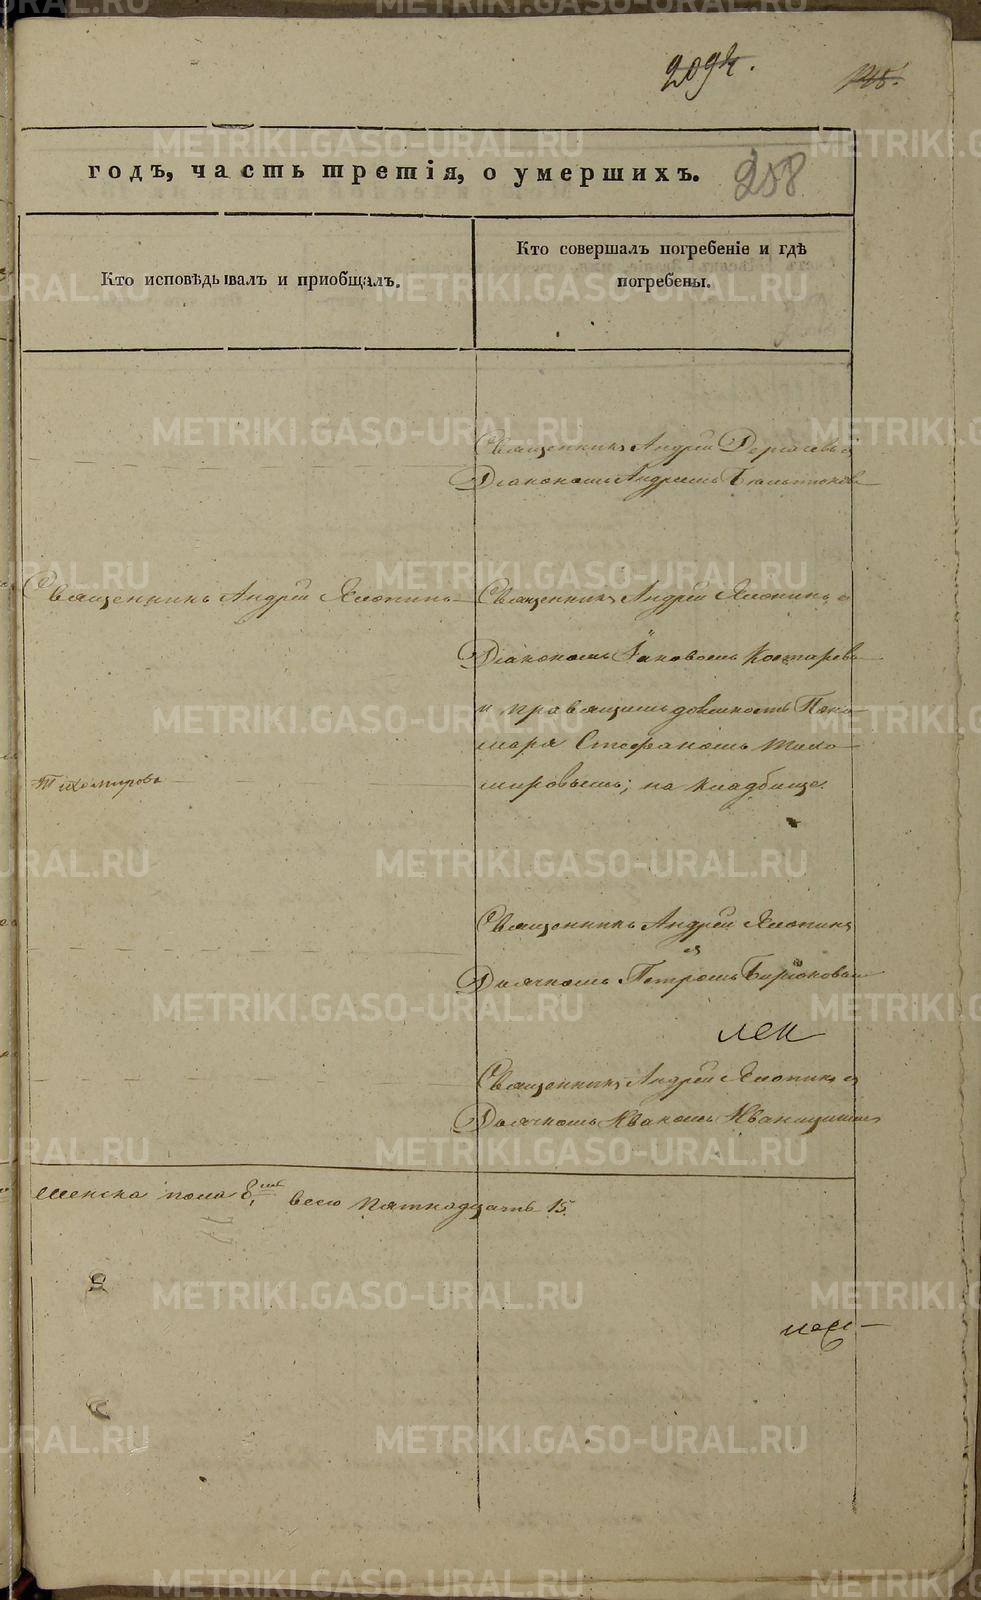 209
258
годъ, часть третія, о умершихъ.
Кто исповѣдывалъ и приобщалъ.
Кто совершалъ погребеніе и гдѣ
погребены.
Священникъ Андрей
Діакономъ Андреемъ
Священникъ Андрей Хлопинъ
Священникъ Андрей Хлопинъ с
Діакономъ Іаковомъ Костарев
и правящимъ должность Поно-
маря Стефаномъ Тихо-
мировымъ; на кладбище.
Тихомировъ
Священникъ Андрей Хлопинъ
съ
Дьячкомъ Петромъ Бирюковым
Священникъ Андрей Хлопинъ с
Дьячкомъ Иваномъ
Женска пола 8, всего пятнадцать 15.
METRIKI.GASO-URAL.RU